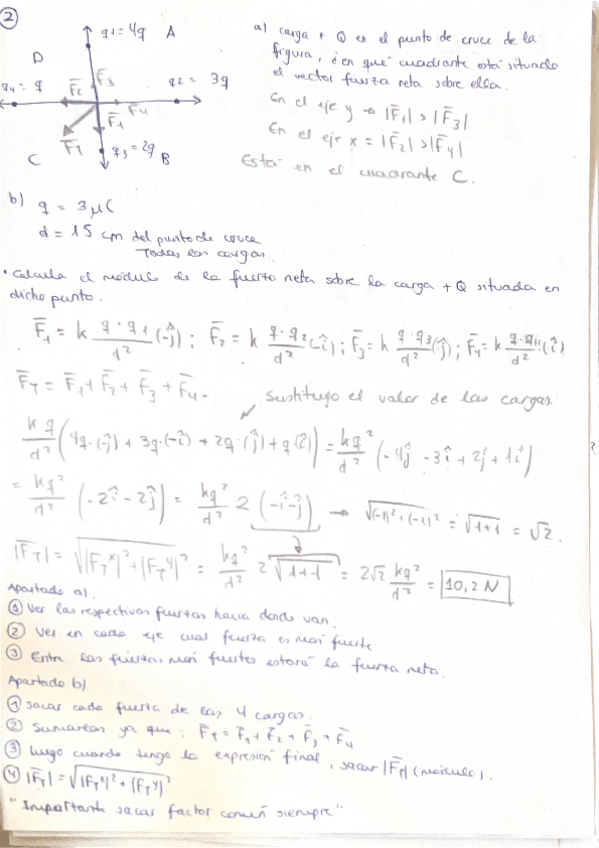 ②
q1 = 4q A
D
q4 = q
q2 = 3q
F̄2 F̄3 F̄4 F̄1
F̄T
C
q3 = 2q B
a) carga + Q en el punto de cruce de la
figura, ¿en qué cuadrante está situado
el vector fuerza neta sobre ella.
En el eje y → |F̄1| > |F̄3|
En el eje x = |F̄2| > |F̄4|
Está en el cuadrante C.
b) q = 3 μC
d = 15 cm del punto de cruce
Todas las cargas.
• Calcula el módulo de la fuerza neta sobre la carga + Q situada en
dicho punto.
F̄1 = k q·q1/d² (-ĵ) ; F̄2 = k q·q2/d² (-î) ; F̄3 = k q·q3/d² (ĵ) ; F̄4 = k q·q4/d² (î)
F̄T = F̄1 + F̄2 + F̄3 + F̄4. Sustituyo el valor de las cargas
kq/d² (4q·(-ĵ) + 3q·(-î) + 2q·(ĵ) + q(î)) = kq²/d² (-4ĵ - 3î + 2ĵ + 1î)
= kq²/d² (-2î - 2ĵ) = kq²/d² 2 (-î-ĵ) → √(-1)² + (-1)² = √1+1 = √2.
|F̄T| = √|FTx|² + |FTy|² = kq²/d² 2 √1+1 = 2√2 kq²/d² = 10,2 N
Apartado a).
① Ver las respectivas fuerzas hacia donde van.
② Ver en cada eje cual fuerza es más fuerte
③ Entre las fuerzas más fuertes estará la fuerza neta.
Apartado b)
① Sacar cada fuerza de las 4 cargas.
② Sumarlas ya que: F̄T = F̄1 + F̄2 + F̄3 + F̄4
③ Luego cuando tengo la expresión final, sacar |F̄T| (módulo).
④ |F̄T| = √|FTx|² + |FTy|²
"Importante sacar factor común siempre"